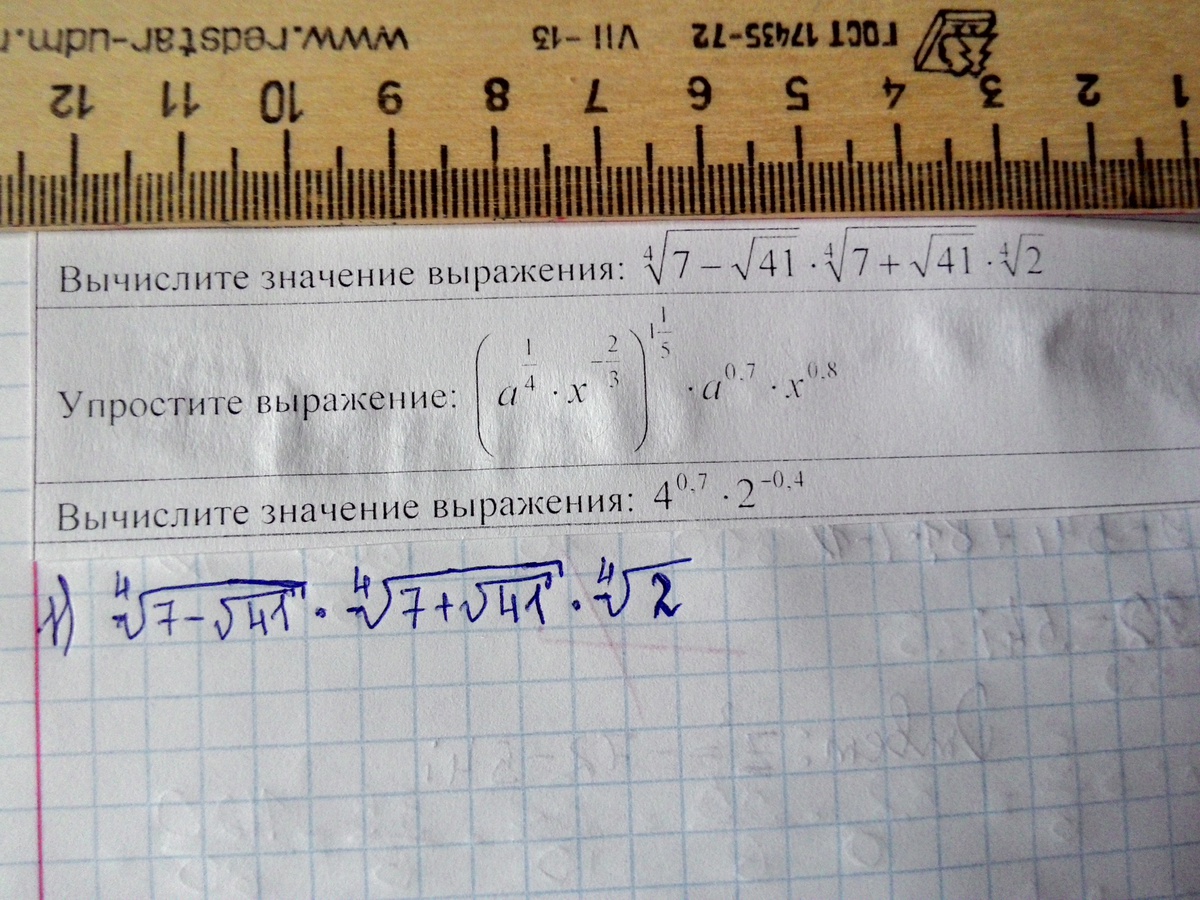 www.redstar-udm.r
VII-13
ГОСТ 17435-72
12 11 10 9 8 7 6 5 4 3 2 1
Вычислите значение выражения: ⁴√(7 − √41) · ⁴√(7 + √41) · ⁴√2
Упростите выражение: (a^(1/4) · x^(−2/3))^(1 1/5) · a^0,7 · x^0,8
Вычислите значение выражения: 4^0,7 · 2^−0,4
1) ⁴√(7−√41) · ⁴√(7+√41) · ⁴√2